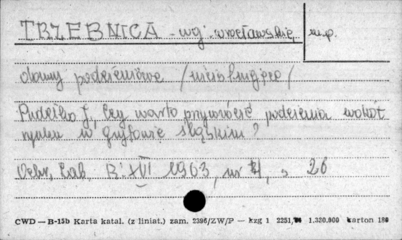 TRZEBNICA - woj. wrocławskie m.p.
domy podcieniowe /nieistniejące/
Pudełko J, Czy warto przywrócić podcienia wokół
rynku w Gryfowie Śląskim?
Ochr. Zab. R. XVI 1963, nr 4, s 26
CWD — B-15b Karta katal. (z liniat.) zam. 2396/ZW/P — kzg 1 2251, 1.320.800 karton 180